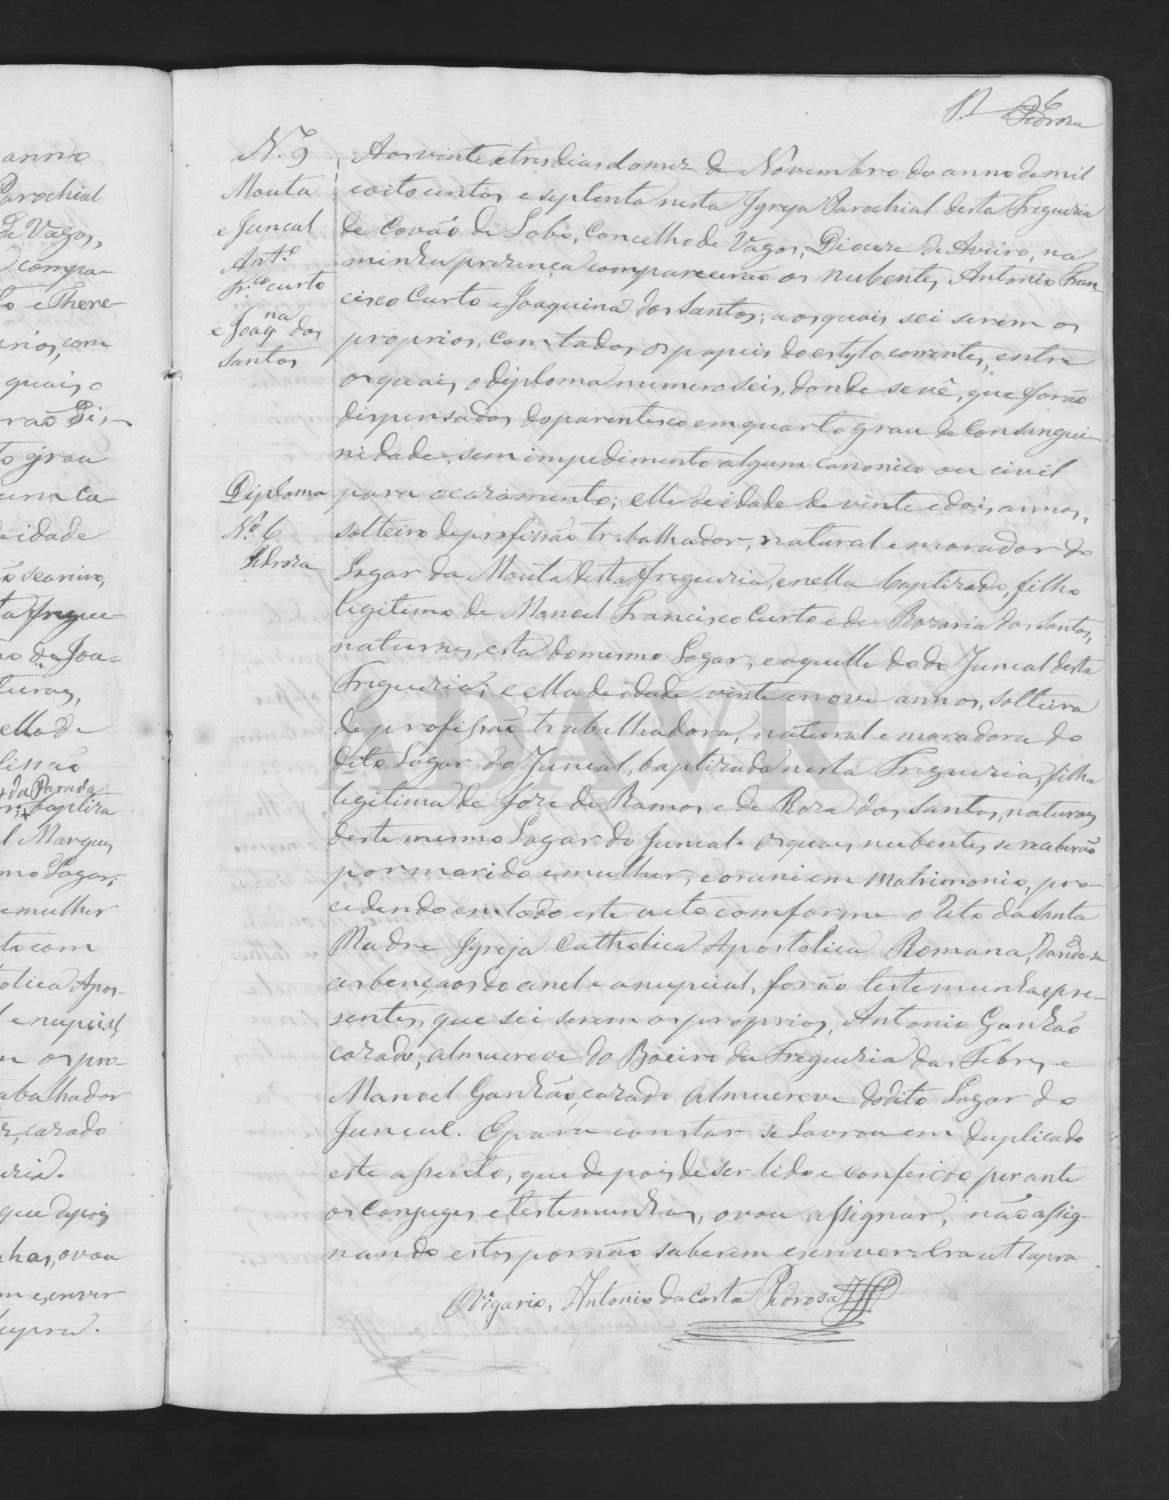 6
Pedrosa
N. 9
Mouta
e Juncal
Ant.º
Fr.co curto
e Joaq.na dos
Santos
Diploma
N.º 6
Pedrosa
Aos vinte e tres dias do mez de Novembro do anno de mil
e oitocentos e septenta nesta Igreja Parochial desta Freguezia
de Covão de Lobo, Concelho de Vagos, Diocese de Aveiro, na
minha prezença comparecerão os nubentes, Antonio Fran-
cisco Curto e Joaquina dos Santos; aos quais sei serem os
proprios, com todos os papeis do estylo correntes, entre
os quais, o diploma numero seis, donde se vê, que forão
dispensados do parentesco em quarto grau de Consangui-
nidade, sem impedimento algum canonico ou civil
para o cazamento; elle de idade de vinte e dois annos,
solteiro de profissão trabalhador, natural e morador do
Logar da Mouta desta freguezia, e nella baptizado, filho
legitimo de Manoel Francisco Curto e de Rozaria dos Santos,
naturaes, esta do mesmo Logar, e aquelle do do Juncal desta
Freguezia; e ella de idade vinte e nove annos, solteira
de profissão trabalhadora, natural e moradora do
dito Logar do Juncal, baptizada nesta Freguezia, filha
legitima de Joze de Ramos e de Roza dos Santos, naturaes
deste mesmo Logar do Juncal. Os quaes nubentes se receberão
por marido e mulher, e os uni em Matrimonio, pro-
cedendo em todo este acto comforme o Rito da Santa
Madre Igreja Catholica Apostolica Romana, dando-se
as bençaos do anel e a nupcial, forão testemunhas pre-
sentes, que sei serem os proprios, Antonio Ganhão
cazado, almucreve do Boeiro da Freguezia das Febres e
Manoel Ganhão, cazado Almucreve do dito Logar do
Juncal. E para constar se lavrou em duplicado
este assento, que depois de ser lido e conferido perante
os Conjuges e testemunhas, o vou assignar, não assig-
nando estes por não saberem escrever. Era ut supra
O Vigario, Antonio da Costa Pedrosa
anno
Parochial
de Vagos,
compa-
to e There-
com
quais o
grau
idade
de Joa-
ella de
da Parada
baptiza
l Marques
mo Logar;
e mulher
to com
tolica Apos-
e nupcial
os pro-
abalhador
cazado
que depois
has, o vou
escrever
supra.
ADAVR